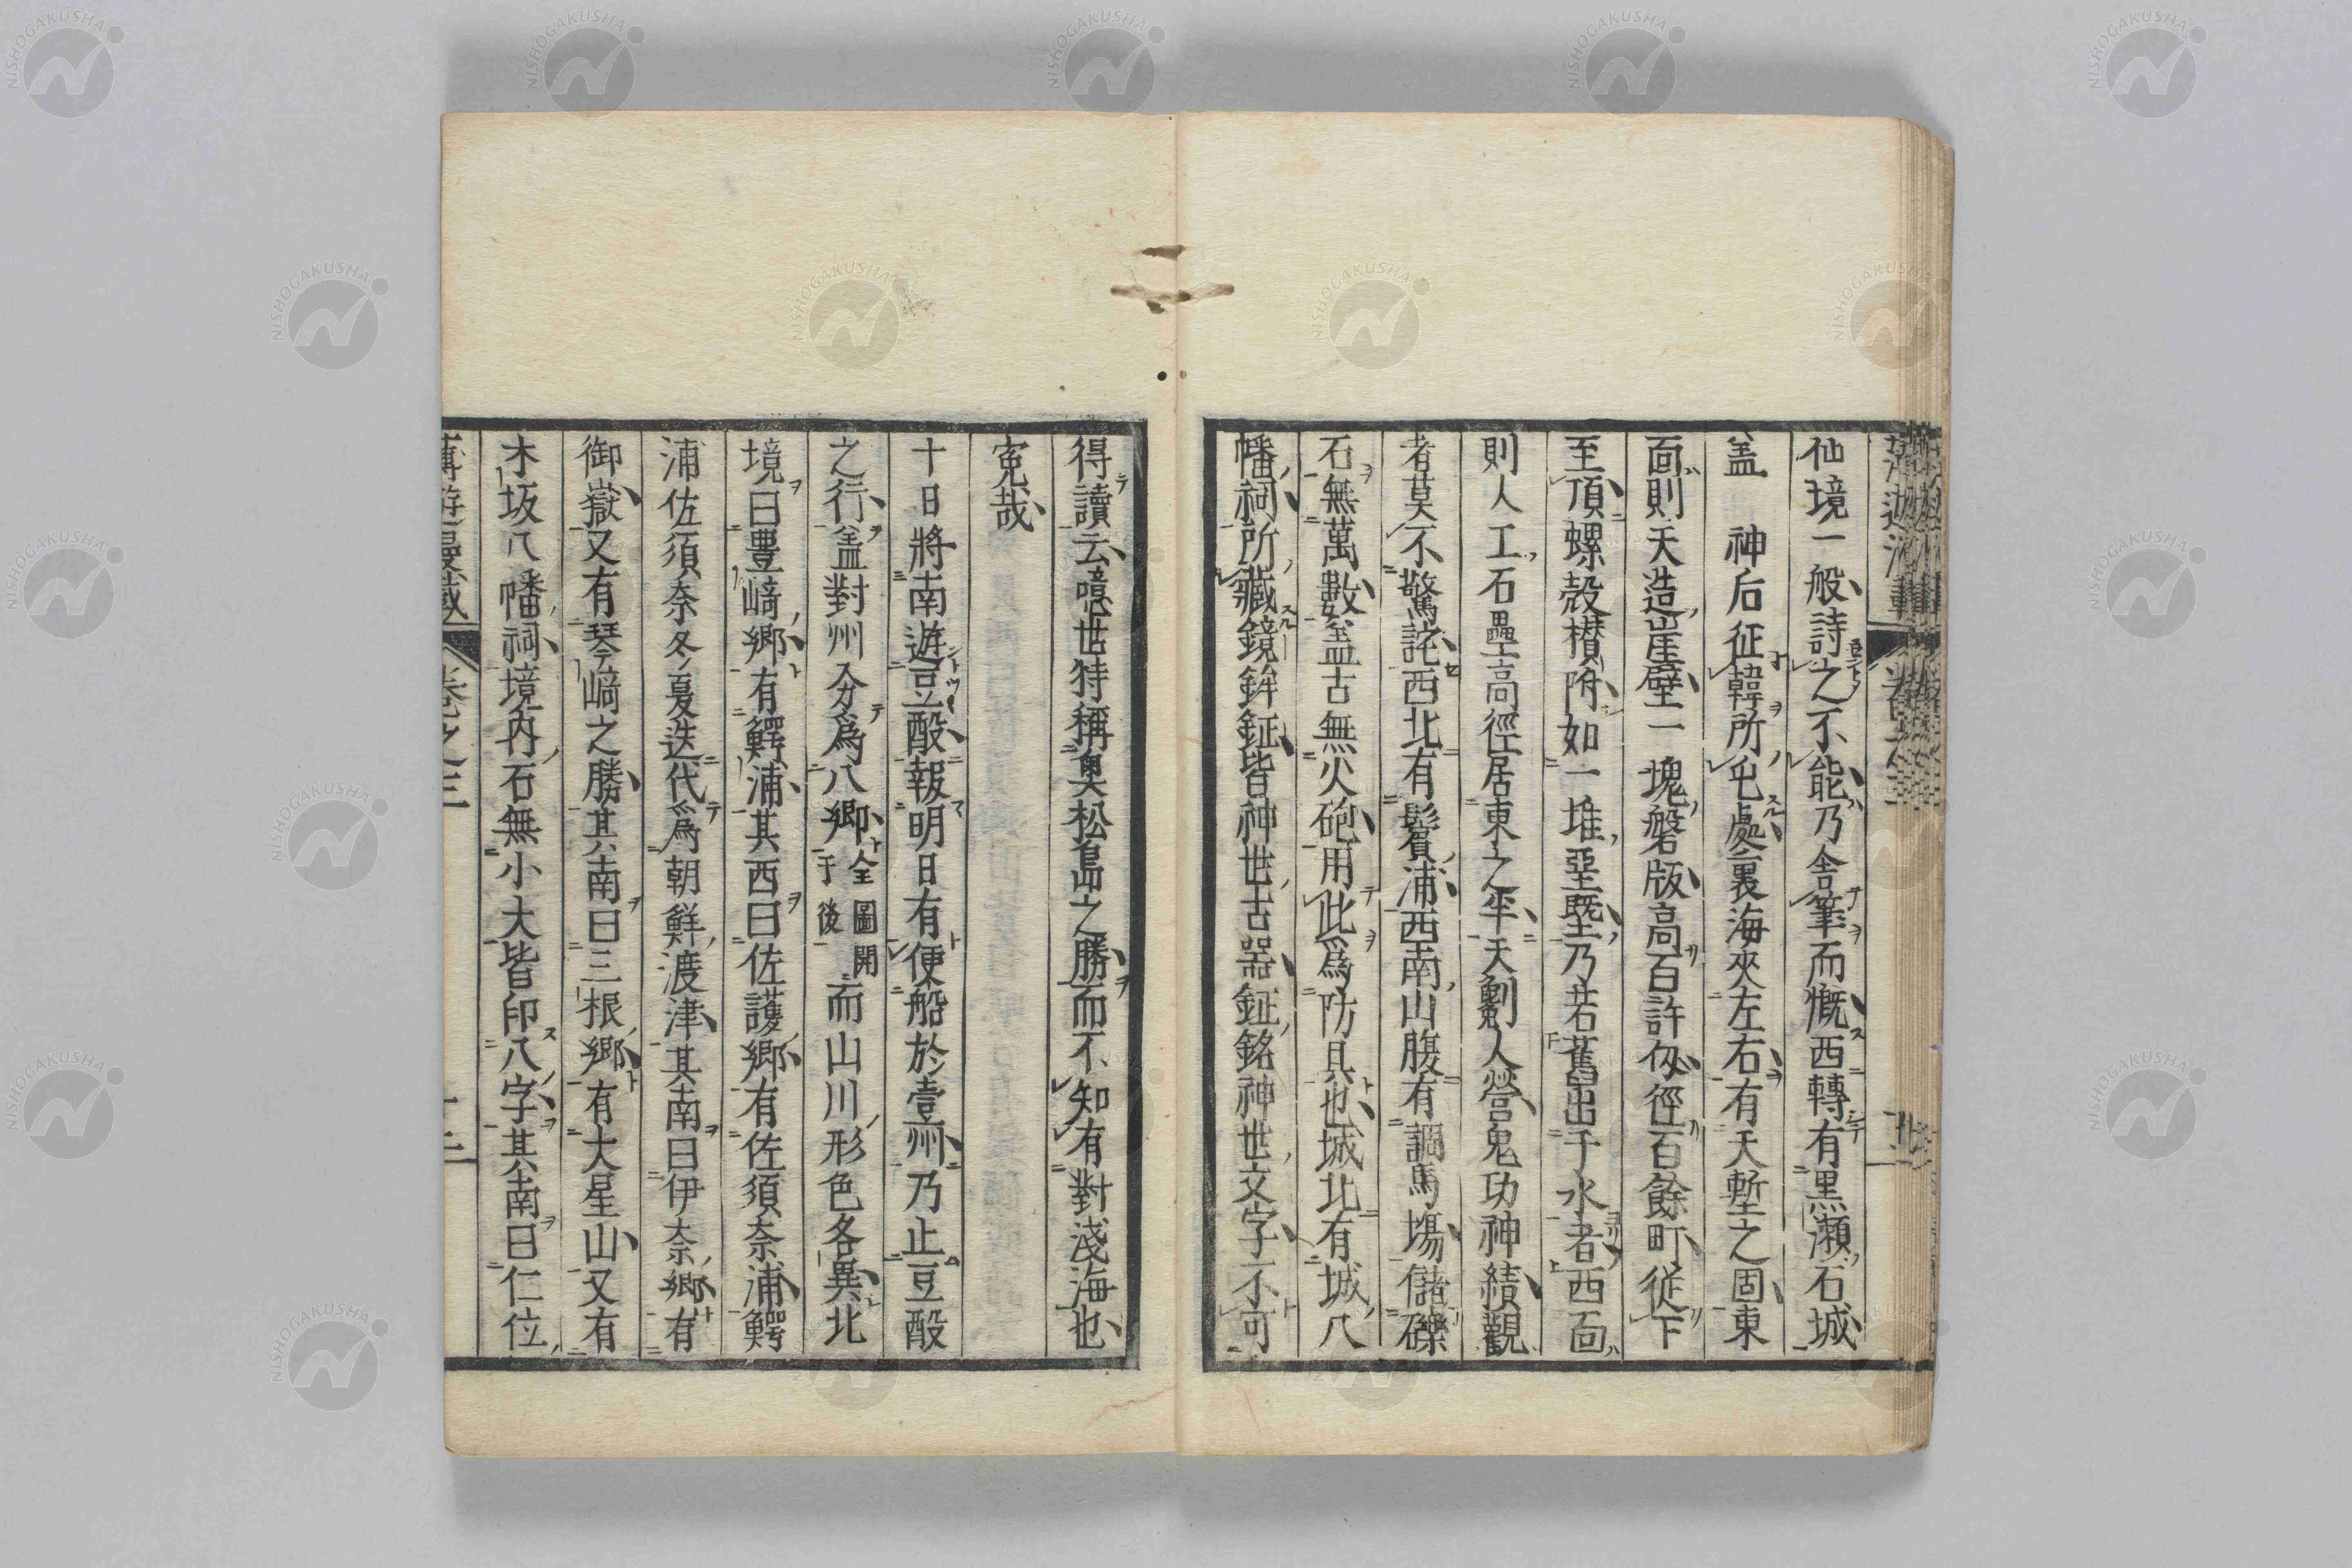 仙境一般詩之不能乃舎筆而慨西轉有黒瀬石城
盖　神后征韓所屯處裏海夾左右有天塹之固東
面則天造崖壁一塊磐版高百許仭徑百餘町從下
至頂螺殻攅附如一堆堊塈乃若舊出于水者西面
則人工石壘高徑居東之半天劖人營鬼功神績觀
者莫不驚詫西北有鬢浦西南山腹有調馬塲儲礫
石無萬數盖古無火砲用此爲防具也城北有城八
幡祠所藏鏡鉾鉦皆神世古器鉦銘神世文字不可
得讀云噫世特稱奥松島之勝而不知有對淺海也
寃哉
十日將南遊豆酘報明日有便船於壹州乃止豆酘
之行盖對州分爲八郷全圖開于後而山川形色各異北
境曰豊﨑郷有鰐浦其西曰佐護郷有佐須奈浦鰐
浦佐須奈冬夏迭代爲朝鮮渡津其南曰伊奈郷有
御嶽又有琴﨑之勝其南曰三根郷有大星山又有
木坂八幡祠境内石無小大皆印八字其南曰仁位
卷之三